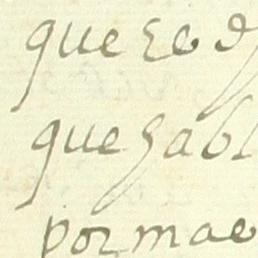 que se d
que habl
por mae